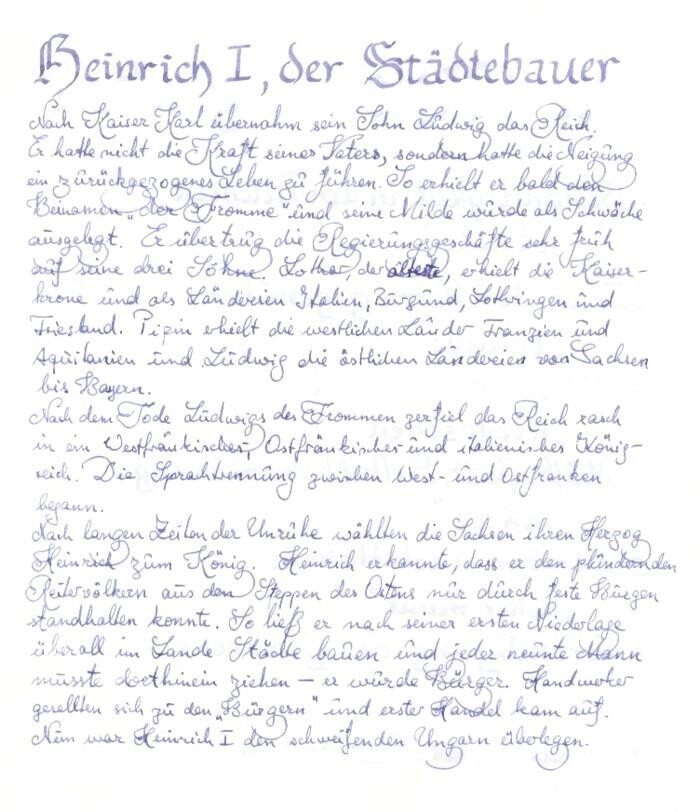 Heinrich I, der Städtebauer
Nach Kaiser Karl übernahm sein Sohn Ludwig das Reich.
Er hatte nicht die Kraft seines Vaters, sondern hatte die Neigung
ein zurückgezogenes Leben zu führen. So erhielt er bald den
Beinamen „der Fromme" und seine Milde wurde als Schwäche
ausgelegt. Er übertrug die Regierungsgeschäfte sehr früh
auf seine drei Söhne. Lothar, der älteste, erhielt die Kaiser-
krone und als Ländereien Italien, Burgund, Lothringen und
Friesland. Pipin erhielt die westlichen Länder Franzien und
Aquitanien und Ludwig die östlichen Ländereien von Sachsen
bis Bayern.
Nach dem Tode Ludwigs des Frommen zerfiel das Reich rasch
in ein Westfränkisches, Ostfränkisches und italienisches König-
reich. Die Sprachtrennung zwischen West- und Ostfranken
begann.
Nach langen Zeiten der Unruhe wählten die Sachsen ihren Herzog
Heinrich zum König. Heinrich erkannte, dass er den plündernden
Reitervölkern aus den Steppen des Ostens nur durch feste Burgen
standhalten konnte. So ließ er nach seiner ersten Niederlage
überall im Lande Städte bauen und jeder neunte Mann
musste dorthinein ziehen – er wurde Bürger. Handwerker
gesellten sich zu den „Bürgern" und erster Handel kam auf.
Nun war Heinrich I den schweifenden Ungarn überlegen.